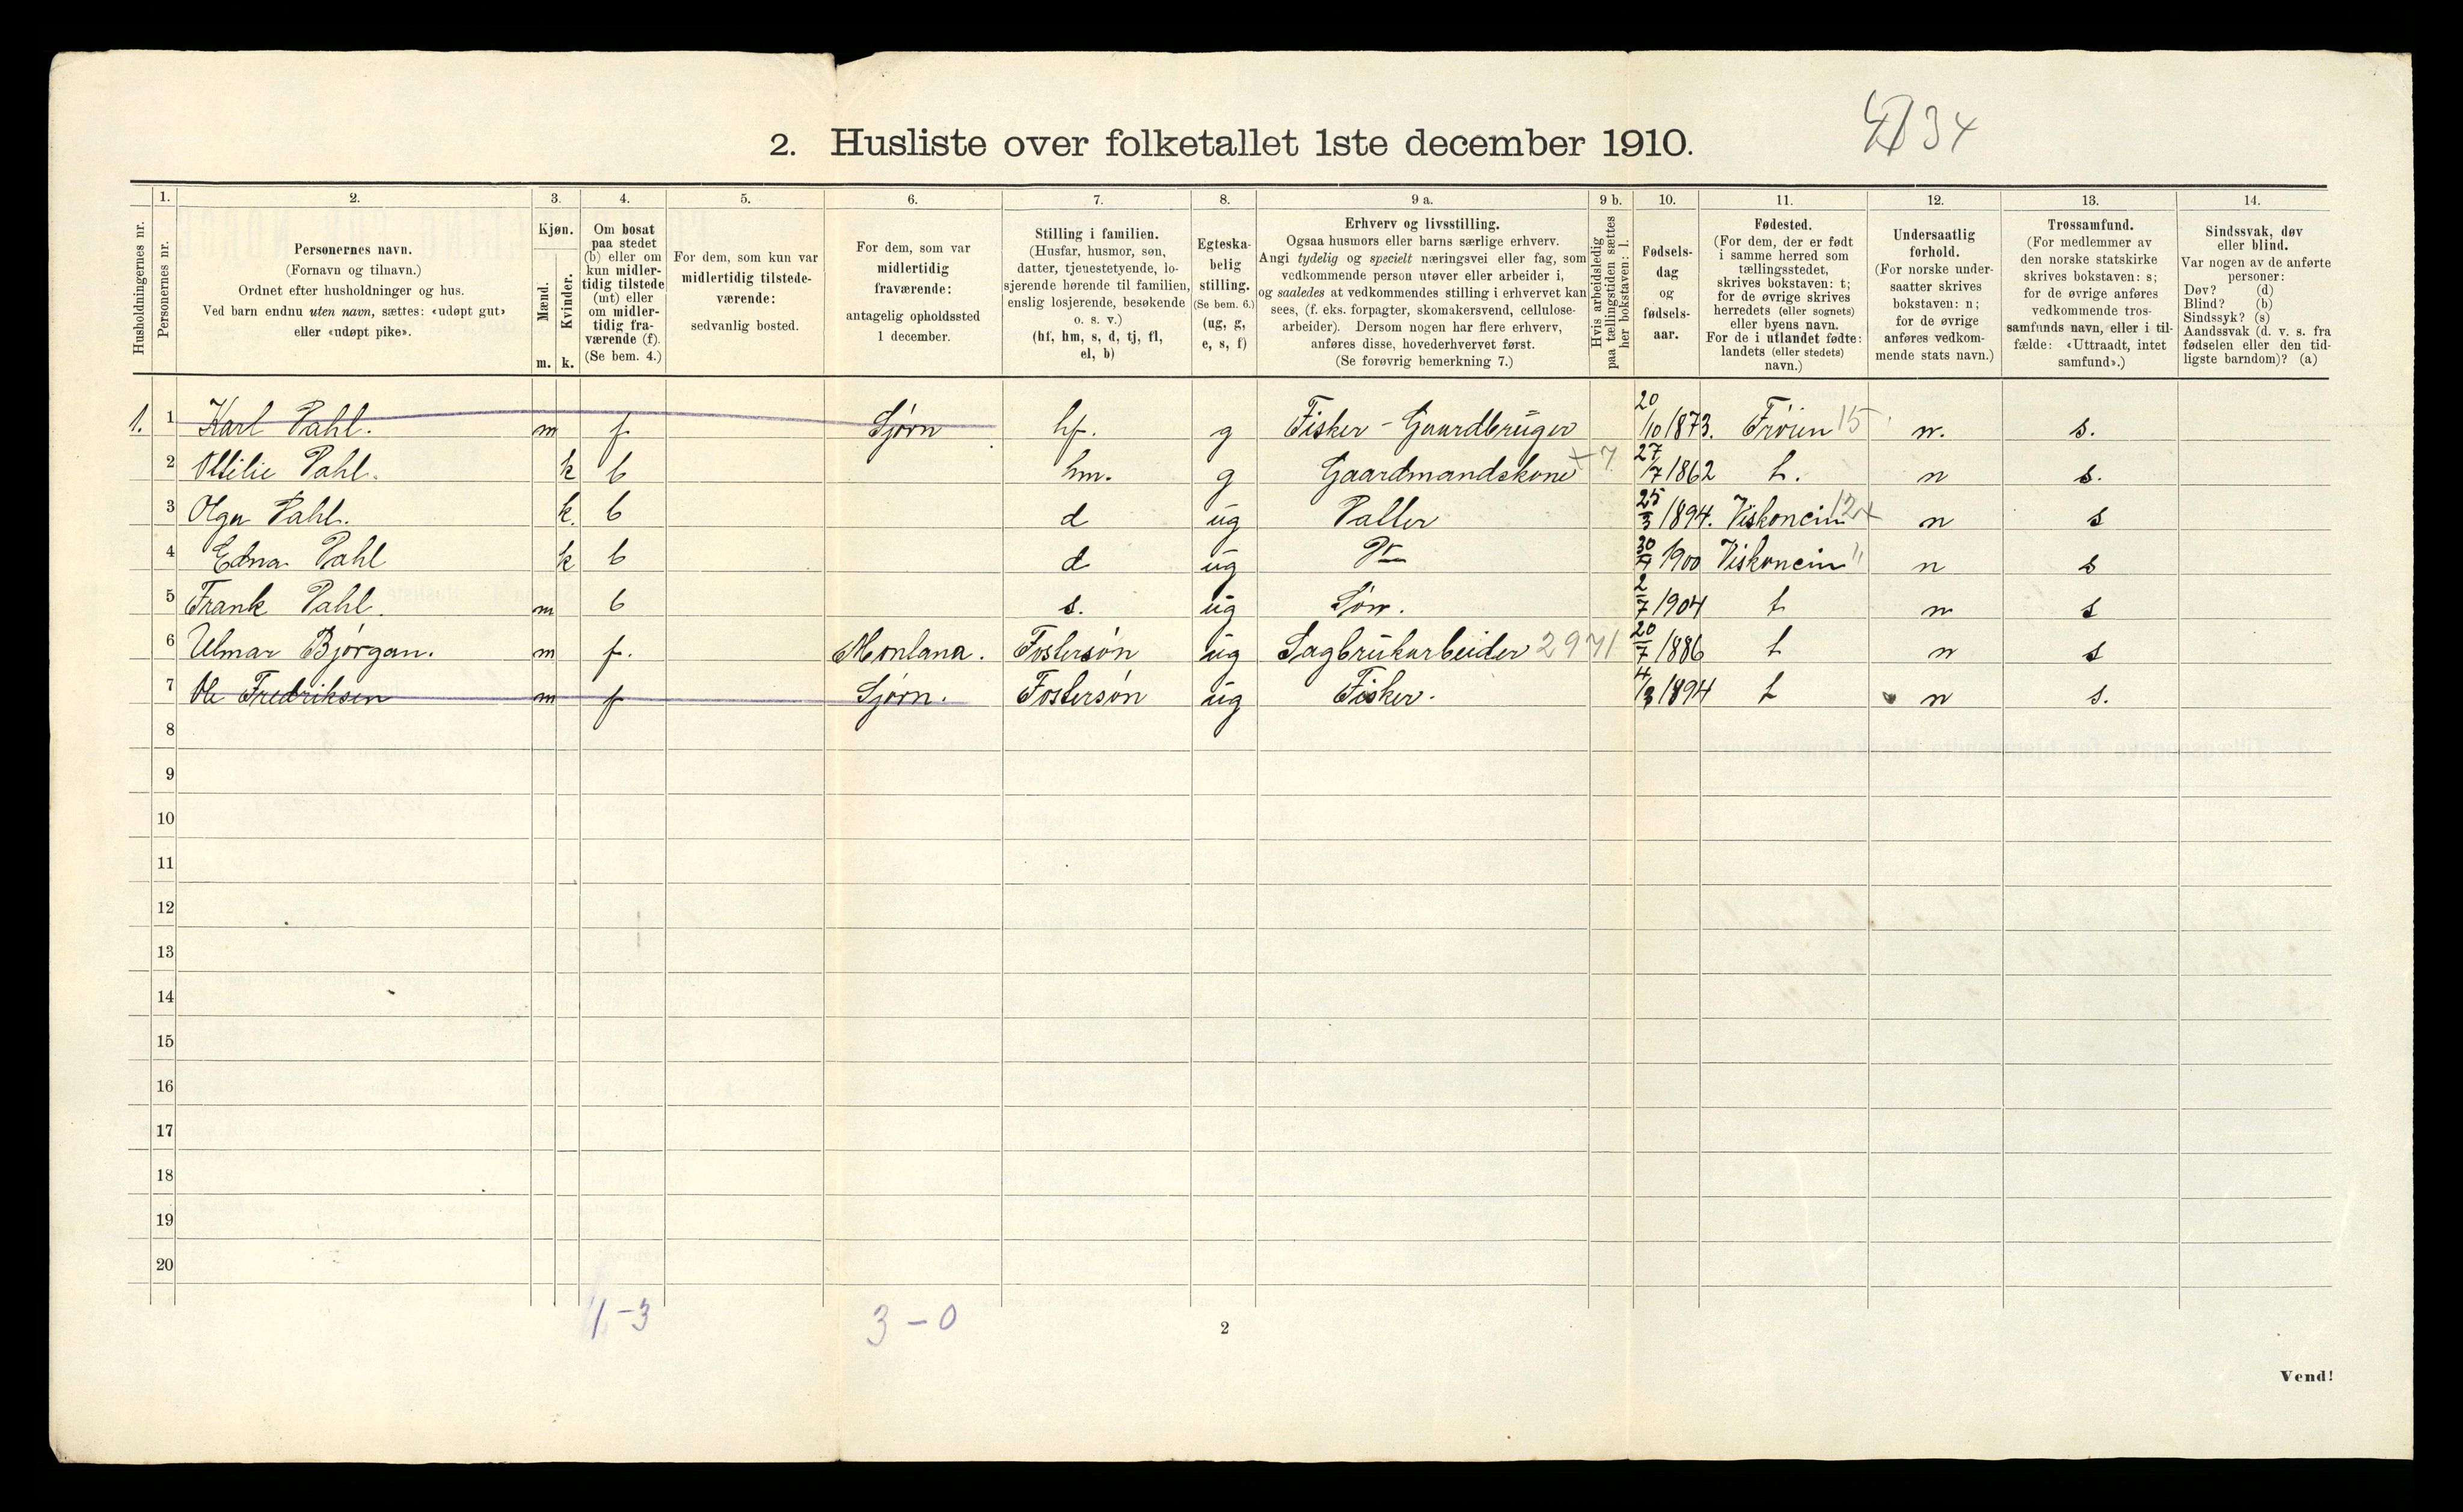 2. Husliste over folketallet 1ste december 1910.
34
1. 2. 3. 4. 5. 6. 7. 8. 9 a. 9 b. 10. 11. 12. 13. 14.
Husholdningernes nr.
Personernes nr.
Personernes navn.
(Fornavn og tilnavn.)
Ordnet efter husholdninger og hus.
Ved barn endnu uten navn, sættes: «udøpt gut»
eller «udøpt pike».
Kjøn.
Mænd.
Kvinder.
m. k.
Om bosat
paa stedet
(b) eller om
kun midler-
tidig tilstede
(mt) eller
om midler-
tidig fra-
værende (f).
(Se bem. 4.)
For dem, som kun var
midlertidig tilstede-
værende:
sedvanlig bosted.
For dem, som var
midlertidig
fraværende:
antagelig opholdssted
1 december.
Stilling i familien.
(Husfar, husmor, søn,
datter, tjenestetyende, lo-
sjerende hørende til familien,
enslig losjerende, besøkende
o. s. v.)
(hf, hm, s, d, tj, fl,
el, b)
Egteska-
belig
stilling.
(Se bem. 6.)
(ug, g,
e, s, f)
Erhverv og livsstilling.
Ogsaa husmors eller barns særlige erhverv.
Angi tydelig og specielt næringsvei eller fag, som
vedkommende person utøver eller arbeider i,
og saaledes at vedkommendes stilling i erhvervet kan
sees, (f. eks. forpagter, skomakersvend, cellulose-
arbeider). Dersom nogen har flere erhverv,
anføres disse, hovederhvervet først.
(Se forøvrig bemerkning 7.)
Hvis arbeidsledig
paa tællingstiden sættes
her bokstaven: l.
Fødsels-
dag
og
fødsels-
aar.
Fødested.
(For dem, der er født
i samme herred som
tællingsstedet,
skrives bokstaven: t;
for de øvrige skrives
herredets (eller sognets)
eller byens navn.
For de i utlandet fødte:
landets (eller stedets)
navn.)
Undersaatlig
forhold.
(For norske under-
saatter skrives
bokstaven: n;
for de øvrige
anføres vedkom-
mende stats navn.)
Trossamfund.
(For medlemmer av
den norske statskirke
skrives bokstaven: s;
for de øvrige anføres
vedkommende tros-
samfunds navn, eller i til-
fælde: «Uttraadt, intet
samfund».)
Sindssvak, døv
eller blind.
Var nogen av de anførte
personer:
Døv? (d)
Blind? (b)
Sindssyk? (s)
Aandssvak (d. v. s. fra
fødselen eller den tid-
ligste barndom)? (a)
1. 1 Karl Pahl. m f Sjørn hf. g Fisker - Gaardbruger 20/10 1873. Frøien 15 n. s.
2 Ottilie Pahl. k b hm. g Gaardmandskone 27/7 1862 t. n s.
3 Olga Pahl. k. b d ug 25/3 1894. Viskoncin n s
4 Edna Pahl k b d ug 1900 Viskoncin " n s
5 Frank Pahl. m b s. ug Søn. 2/7 1904 t n s
6 Ulmar Bjørgan. m f. Montana. Fostersøn ug Sagbrukarbeider 2971 20/7 1886 t n s
7 Ole Fredriksen m f Sjørn. Fostersøn ug Fisker. 4/3 1894 t n s.
8
9
10
11
12
13
14
15
16
17
18
19
20
1-3 3-0
2
Vend!